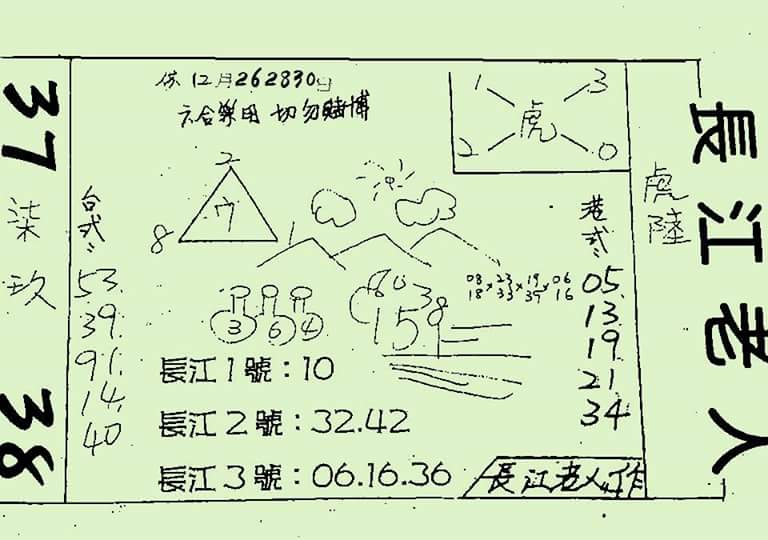 12月262830日
六合樂用 切勿賭博
1 3
虎
2 0
長江老人
虎
陸
37
柒
玖
38
台式:
53.
39.
91.
14.
40
2
8
3
1
3 6 4
15
38
08 23 19 06
18 × 33 × 39 × 16
港式:
05.
13.
19.
21.
34
長江1號:10
長江2號:32.42
長江3號:06.16.36
長江老人作